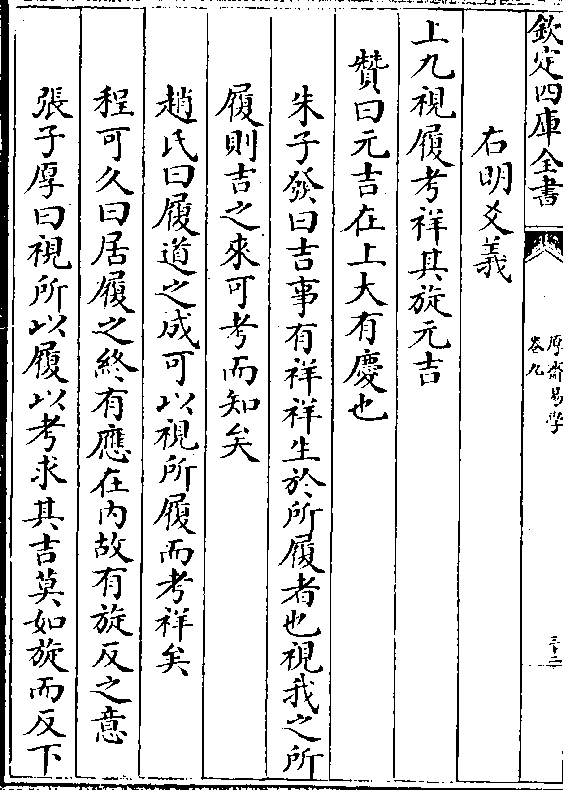 欽定四庫全書
厚齋易學
卷九
三十二
右明爻義
上九視履考祥其旋元吉
贊曰元吉在上大有慶也
朱子發曰吉事有祥祥生於所履者也視我之所
履則吉之來可考而知矣
趙氏曰履道之成可以視所履而考祥矣
程可久曰居履之終有應在内故有旋反之意
張子厚曰視所以履以考求其吉莫如旋而反下